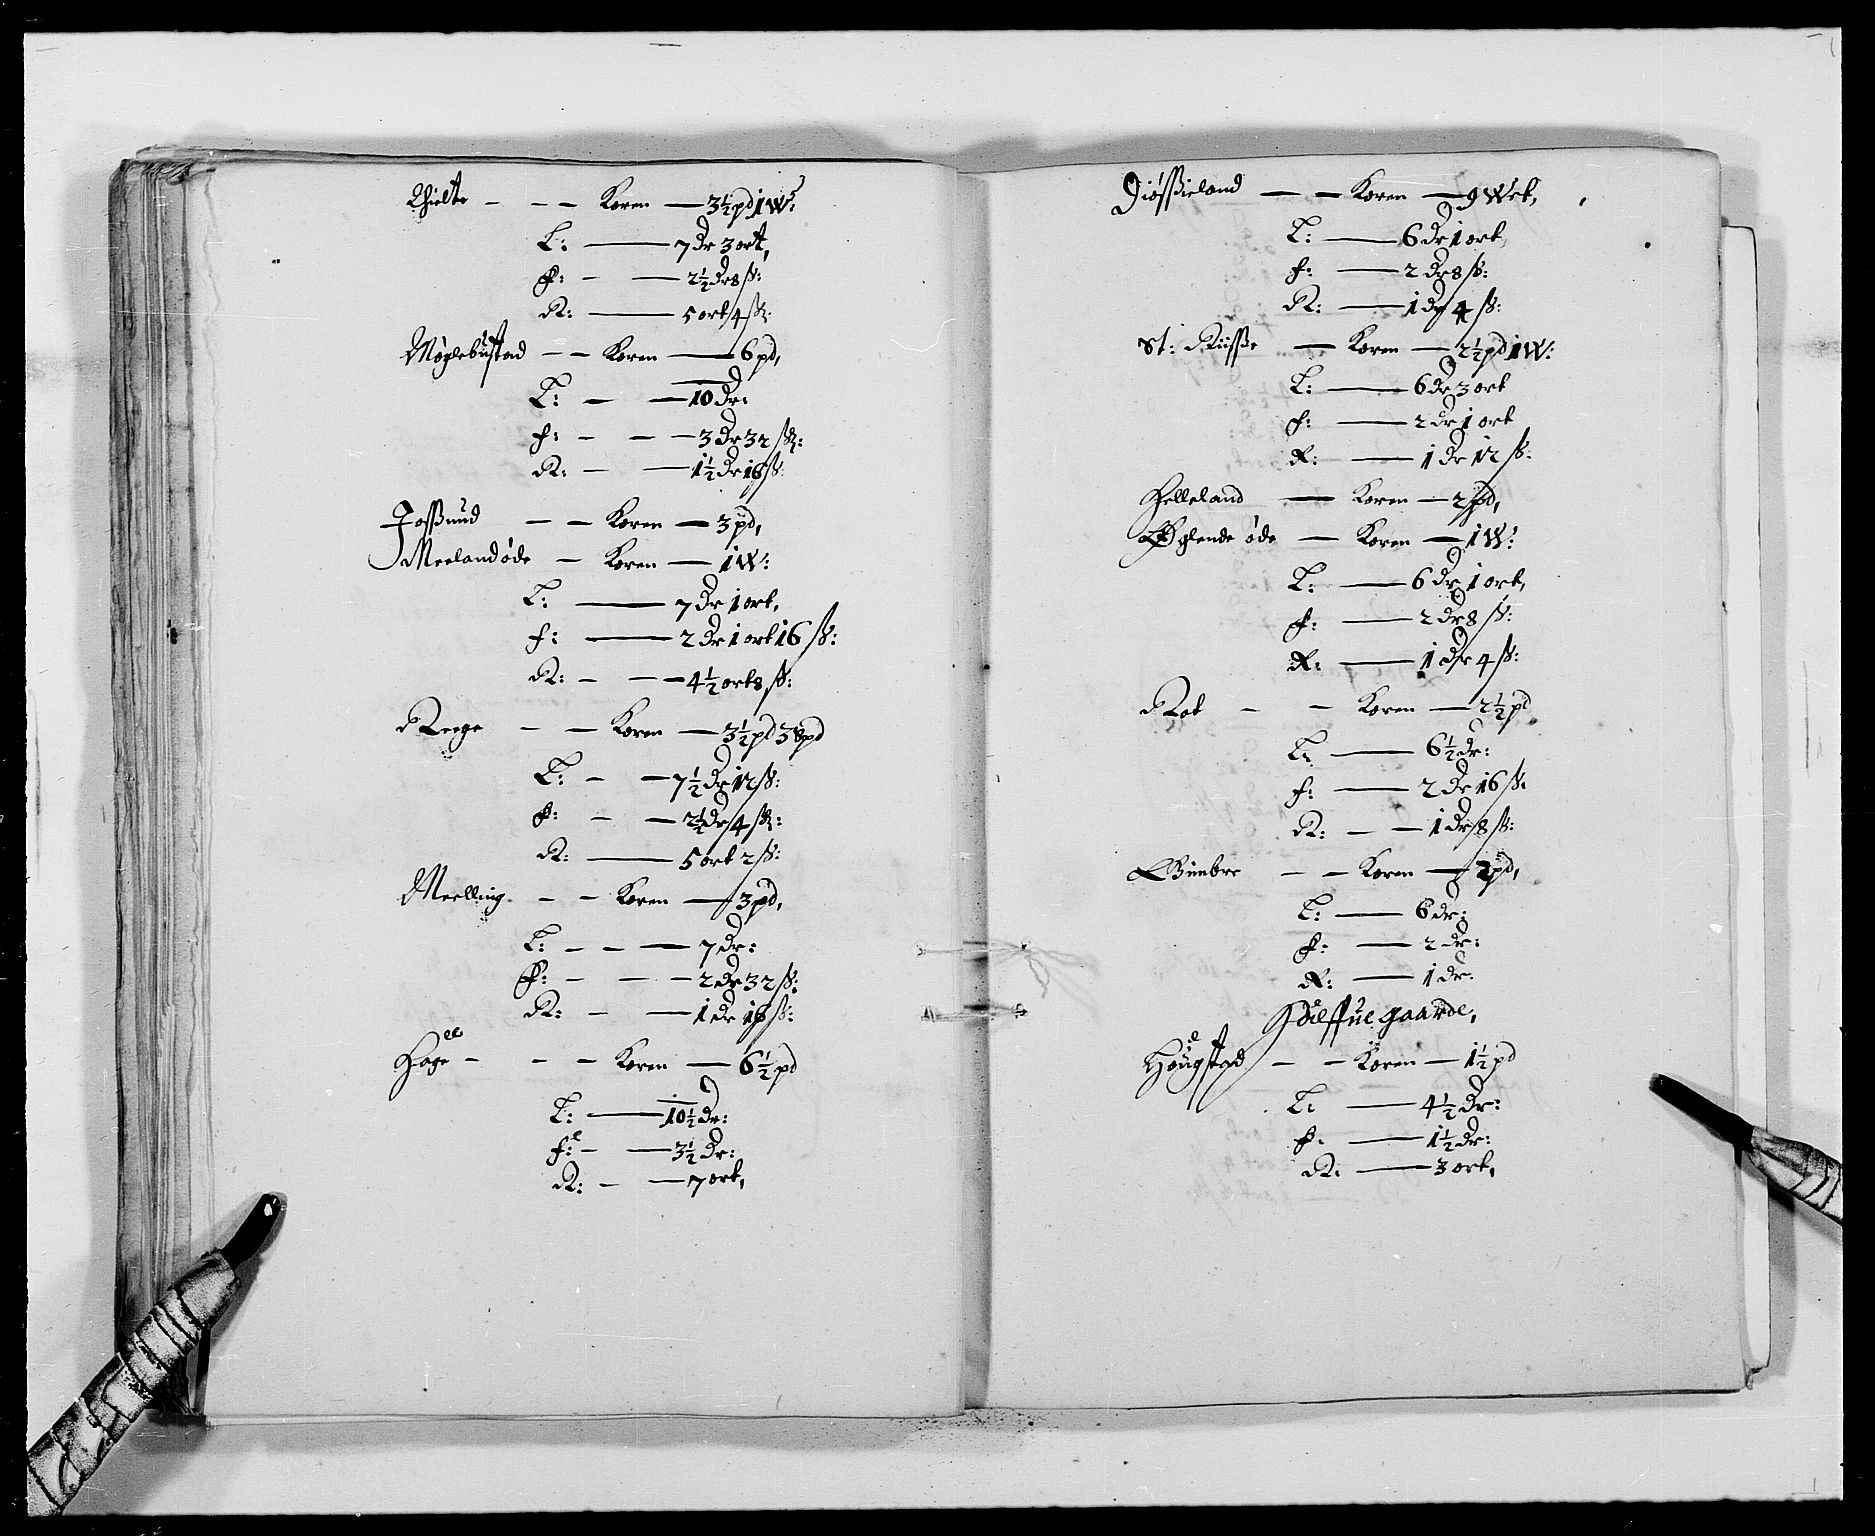 Thielte - - - Koren — 3½ pd 1 W:
L: — 7 Dr 3 ort,
F: - — 2½ Dr 8 ß:
R: — 5 ort 4 ß:
Møglebustad - - Koren — 6 pd,
L: - — 10 Dr:
F: - - — 3 Dr 32 ß:
R: - — 1½ Dr 16 ß:
Jossund - - Koren — 3 pd,
Meeland øde - Koren — 1 W:
L: — 7 Dr 1 ort,
F: — 2 Dr 1 ort 16 ß:
R: - - — 4½ ort 8 ß:
Reege - - Koren — 3½ pd 38 pd
L: - — 7½ Dr 12 ß:
F: - — 2½ Dr 4 ß:
R: — 5 ort 2 ß:
Meelling - - Koren — 3 pd,
L: - - — 7 Dr:
F: - - — 2 Dr 32 ß:
R: - — 1 Dr 16 ß:
Hoge - - - Koren — 6½ pd
L: — 10½ Dr:
F: - — 3½ Dr:
R: - — 7 ort,
Diøssieland - - Koren — 9 Wet,
L: — 6 Dr 1 ort
F: — 2 Dr 8 ß:
R: — 1 Dr 4 ß:
St: Riisse - Koren — 2½ pd 1 W:
L: — 6 Dr 3 ort
F: — 2 Dr 1 ort
R: — 1 Dr 12 ß:
Helleland — Koren — 2 pd,
Øglende øde - Koren — 1 W:
L: — 6 Dr 1 ort,
F: — 2 Dr 8 ß:
R: — 1 Dr 4 ß:
Rot - - Koren — 2½ pd
L: — 6½ Dr:
F: — 2 Dr 16 ß:
R: - — 1 Dr 8 ß:
Giimbre - - Koren — 2 pd,
L: — 6 dr:
F: — 2 dr:
R: — 1 dr:
Halffue gaarde,
Haugstad - - Koren — 1½ pd
L: — 4½ Dr:
F: — 1½ Dr:
R: — 3 ort,